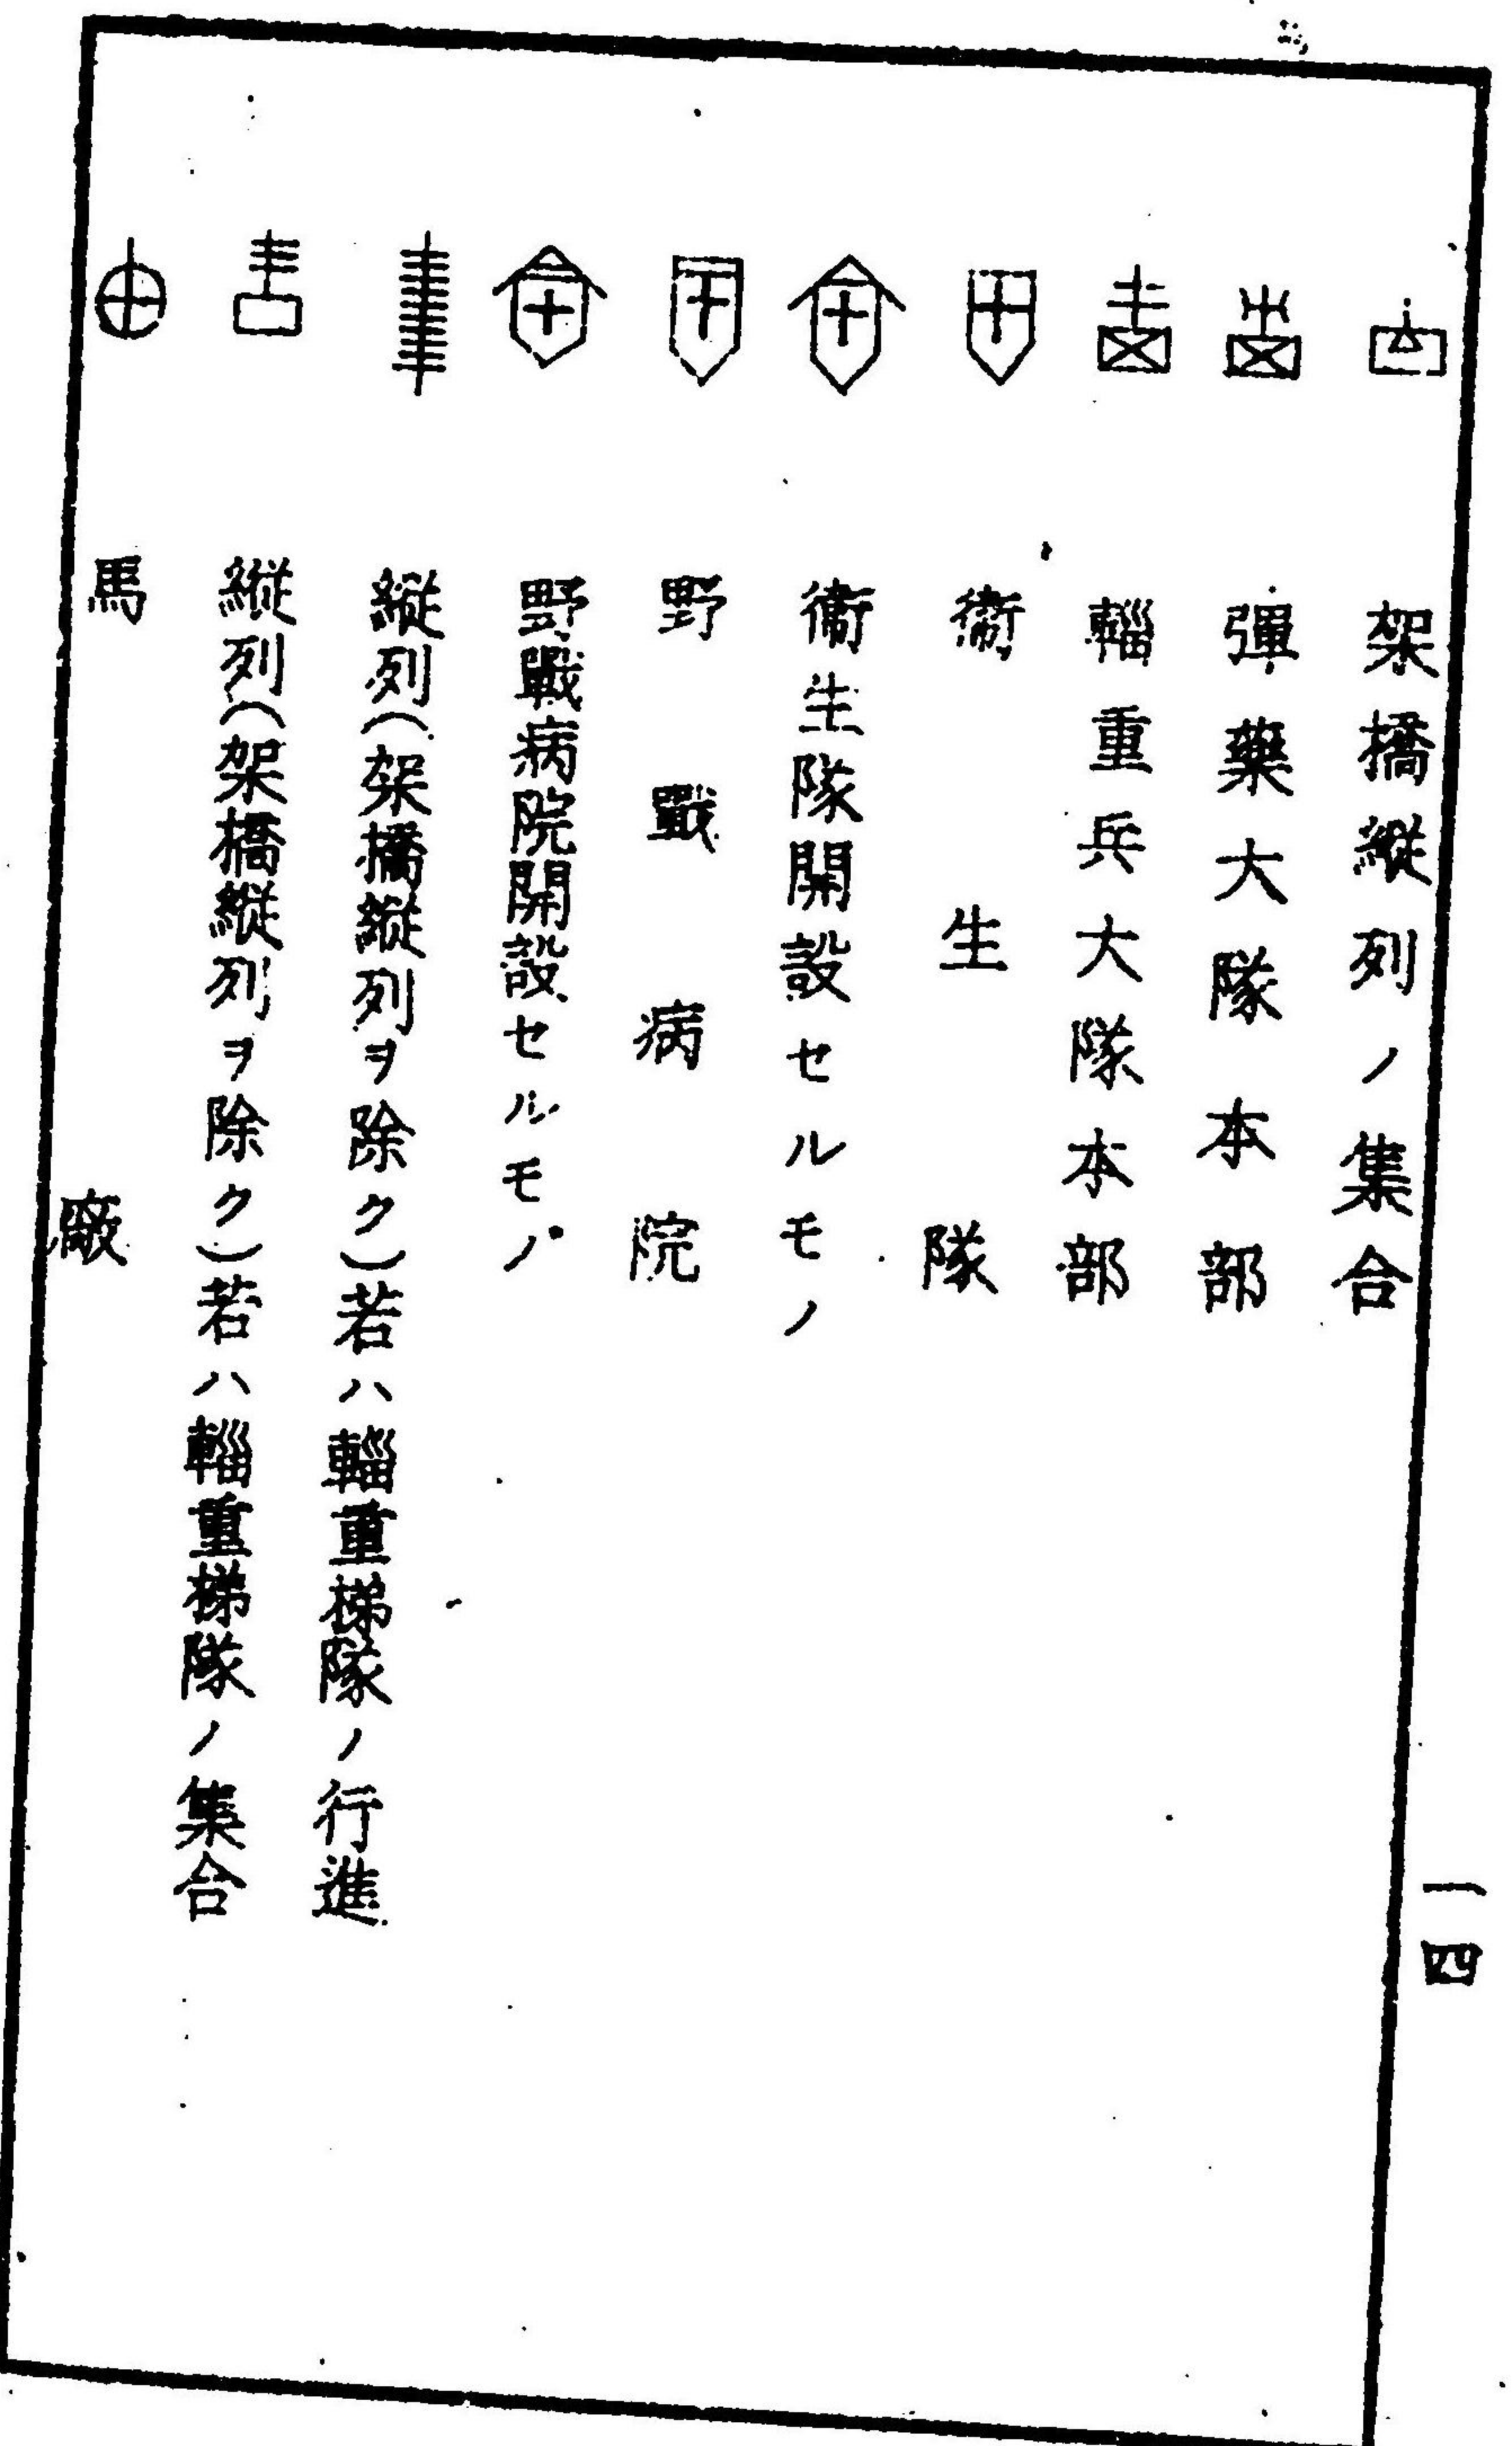 架橋縱列ノ集合
彈藥大隊本部
輜重兵大隊本部
衞生隊
衞生隊開設セルモノ
野戰病院
野戰病院開設セルモノ
縱列(架橋縱列ヲ除ク)若ハ輜重梯隊ノ行進
縱列(架橋縱列ヲ除ク)若ハ輜重梯隊ノ集合
馬廠
一四